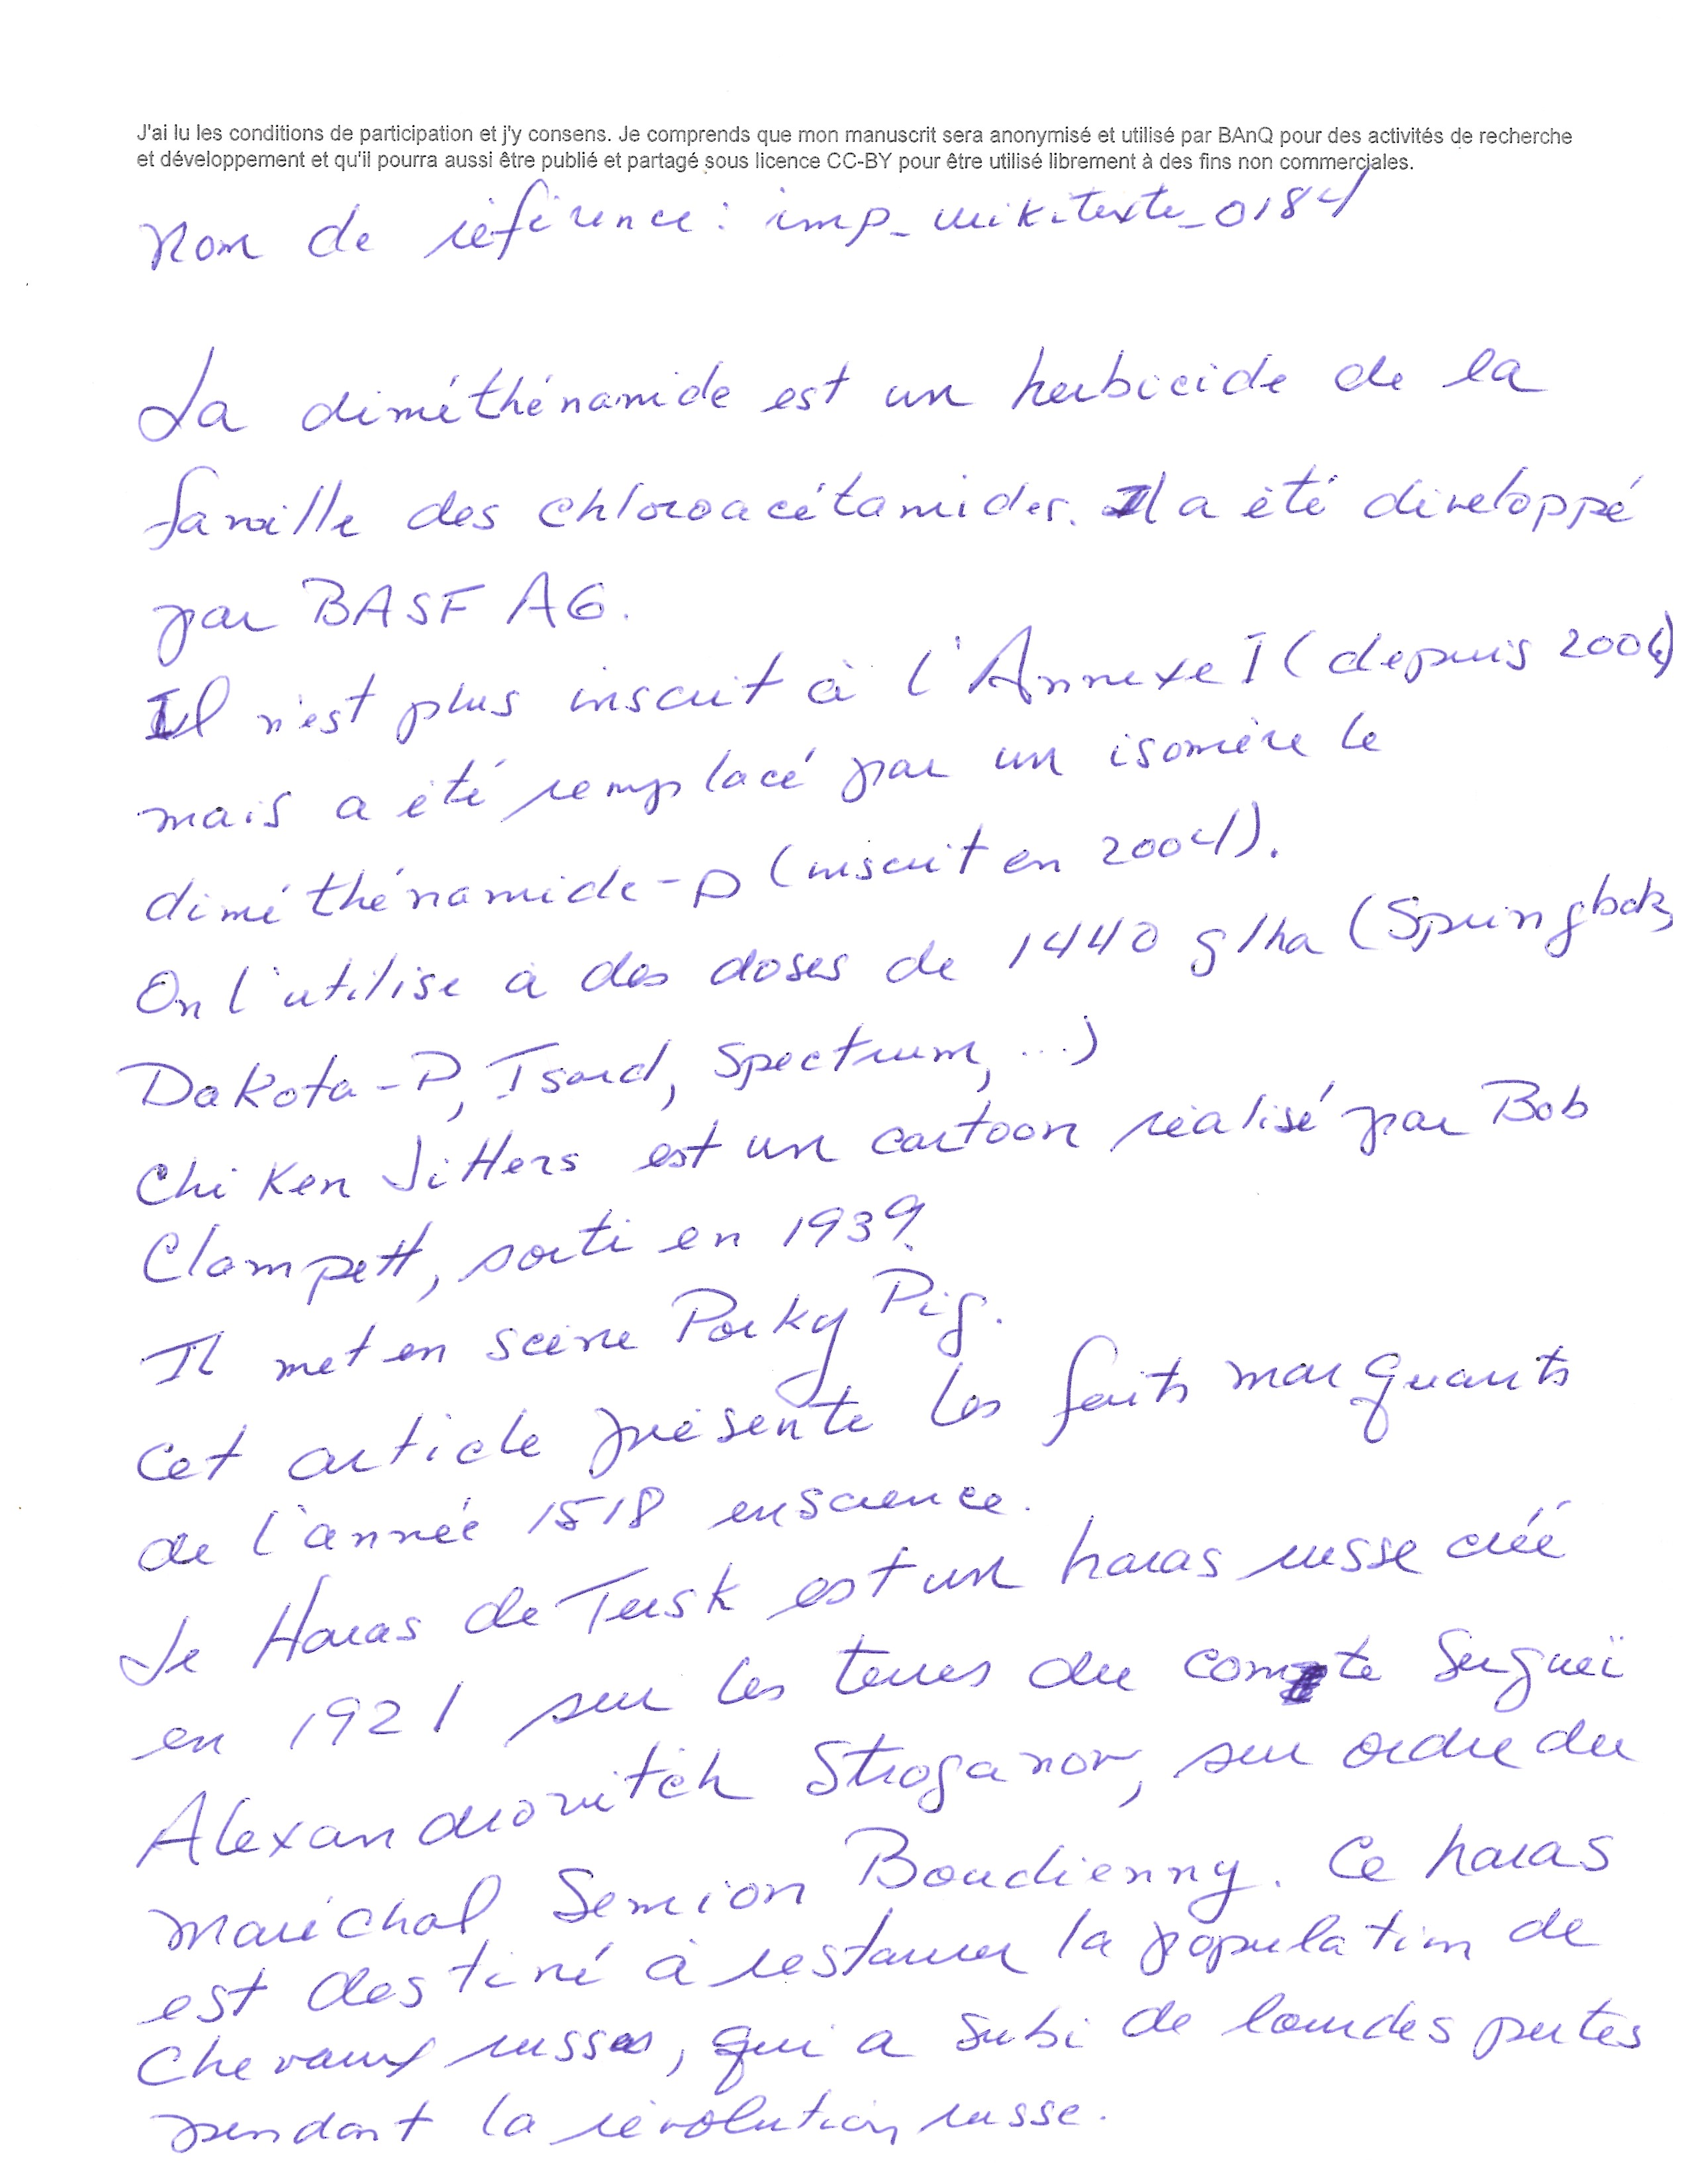 J'ai lu les conditions de participation et j'y consens. Je comprends que mon manuscrit sera anonymisé et utilisé par BAnQ pour des activités de recherche
et développement et qu'il pourra aussi être publié et partagé sous licence CC-BY pour être utilisé librement à des fins non commerciales.
Nom de référence : imp_wikitexte_0184
La diméthénamide est un herbicide de la
famille des chloroacétamides. Il a été développé
par BASF AG.
Il n'est plus inscrit à l'Annexe I (depuis 2004)
mais a été remplacé par un isomère le
diméthénamide-p (inscrit en 2004).
On l'utilise à des doses de 1440 g/ha (Springbok,
Dakota-P, Isard, Spectrum, ...)
Chiken Jitters est un cartoon réalisé par Bob
Clampett, sorti en 1939.
Il met en scène Porky Pig.
Cet article présente les faits marquants
de l'année 1518 en science.
Le Haras de Tersk est un haras russe créé
en 1921 sur les terres du comte Sergueï
Alexandrovitch Stroganov, sur ordre du
maréchal Semion Boudienny. Ce haras
est destiné à restaurer la population de
chevaux russes, qui a subi de lourdes pertes
pendant la révolution russe.